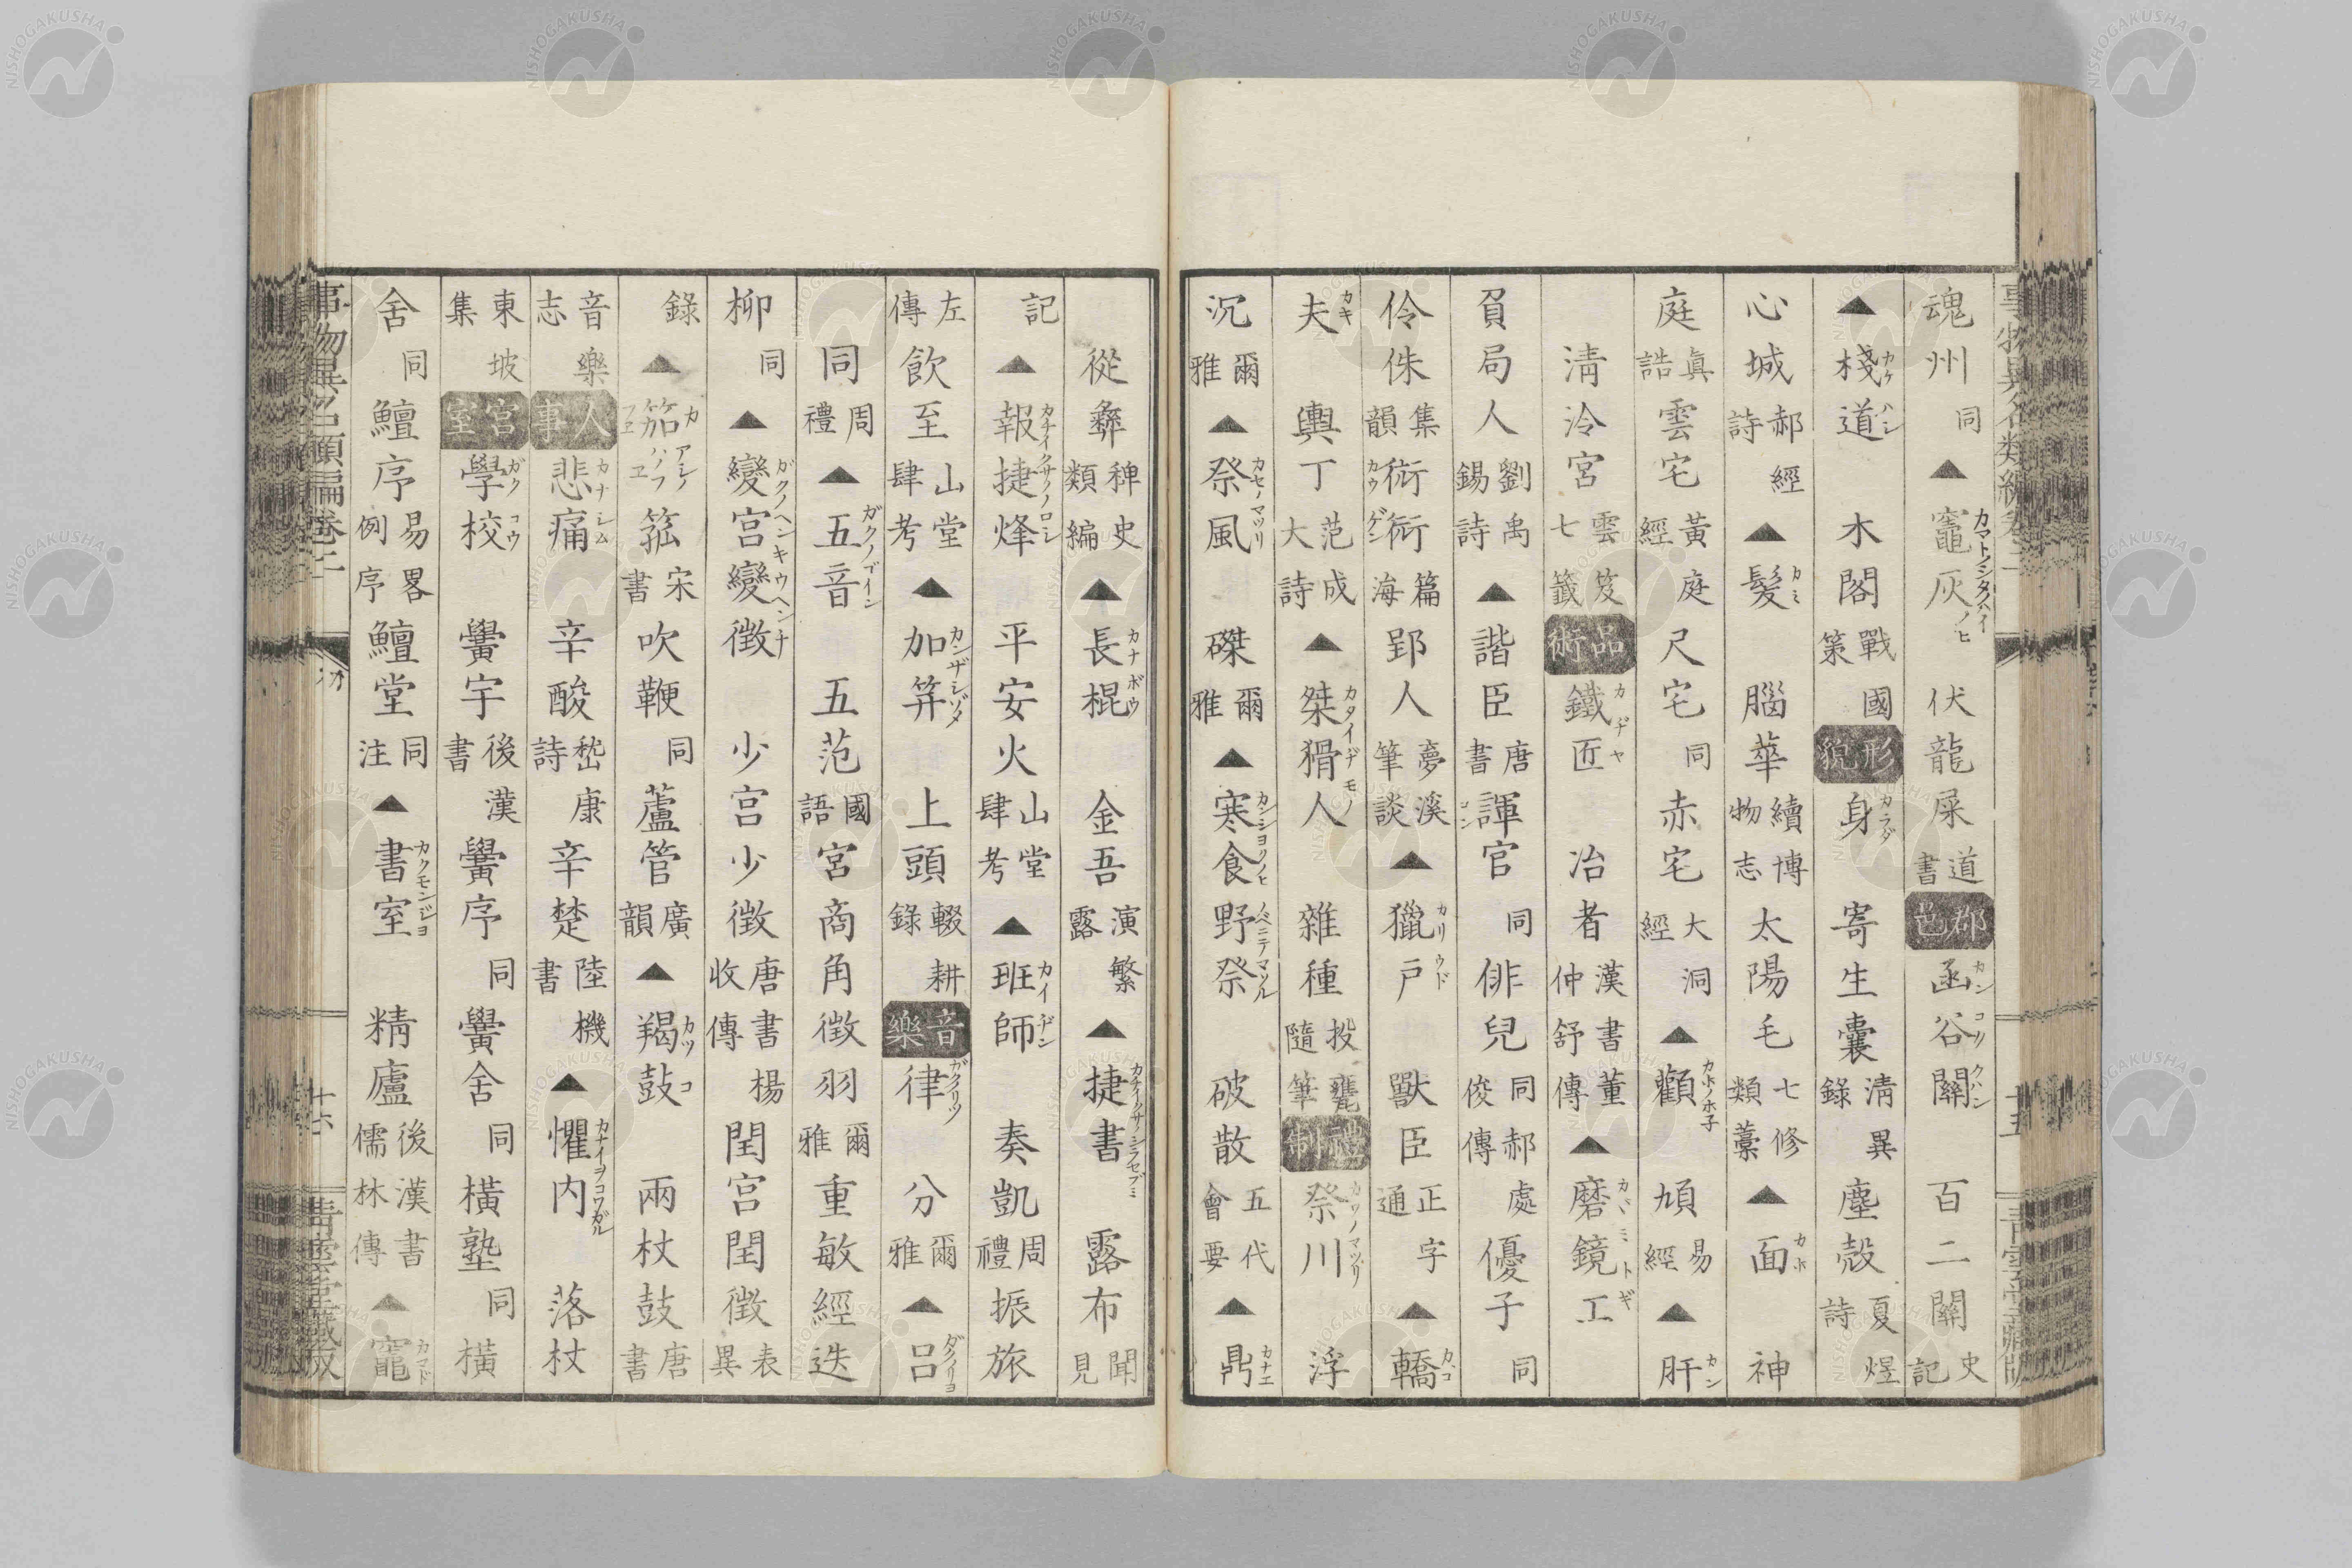 魂州同▲竈灰カマトノシタノハイノヒ伏龍屎道書郡邑函谷關カンコクノクハン百二關史記
▲棧道カケハシ木閣戰國策形貌身カラダ寄生囊清異錄塵殼夏煜詩
心城郝經詩▲髮カミ腦華續博物志太陽毛七修類藁▲面カホ神
庭眞誥雲宅黃庭經尺宅同赤宅大洞經▲顴カホノホネ頄易經▲肝カン
淸泠宮雲笈七籤品術鐵匠カヂヤ冶者漢書董仲舒傳▲磨鏡カヾミトギ工
負局人劉禹錫詩▲諧臣唐書諢官同俳兒同郝處俊傳優子同
伶侏集韻衏衏篇海郢人夢溪筆談▲獵戶カリウド獸臣正字通▲轎カゴ
夫カキ輿丁范成大詩▲桀猾人カタイヂモノ雜種投甕隨筆禮制祭川カワノマツリ浮
沉爾雅▲祭風カゼノマツリ磔爾雅▲寒食カンシヨクノヒ野祭ノベニテマツル破散五代會要▲鼎カナエ
從彝稗史類編▲長棍カナボウ金吾演繁露▲捷書露布聞見
記▲報捷烽カチイクサノノロシ平安火山堂肆考▲班師カイヂン奏凱周禮振旅
左傳飲至山堂肆考▲加笄カンザシゾメ上頭輟耕錄音樂律ガクリツ分爾雅▲呂
同周禮▲五音ガクノゴイン五范國語宮商角徵羽爾雅重敏經迭
柳同▲變宮變徵ガクノヘンキウヘンチ少宮少徵唐書楊收傳閏宮閏徵表異
錄▲笳カアシノハノフヱ箛宋書吹鞭同蘆管廣韻▲羯鼓カツコ兩杖鼓唐書
音樂志人事悲痛カナシム辛酸嵇康詩辛楚陸機書▲懼內カナイヲコワガル落杖
東坡集宮室學校ガクコウ黌宇後漢書黌序同黌舍同橫塾同橫
舍同鱣序易畧例序鱣堂同注▲書室カクモンジヨ精廬後漢書儒林傳▲竈カマド